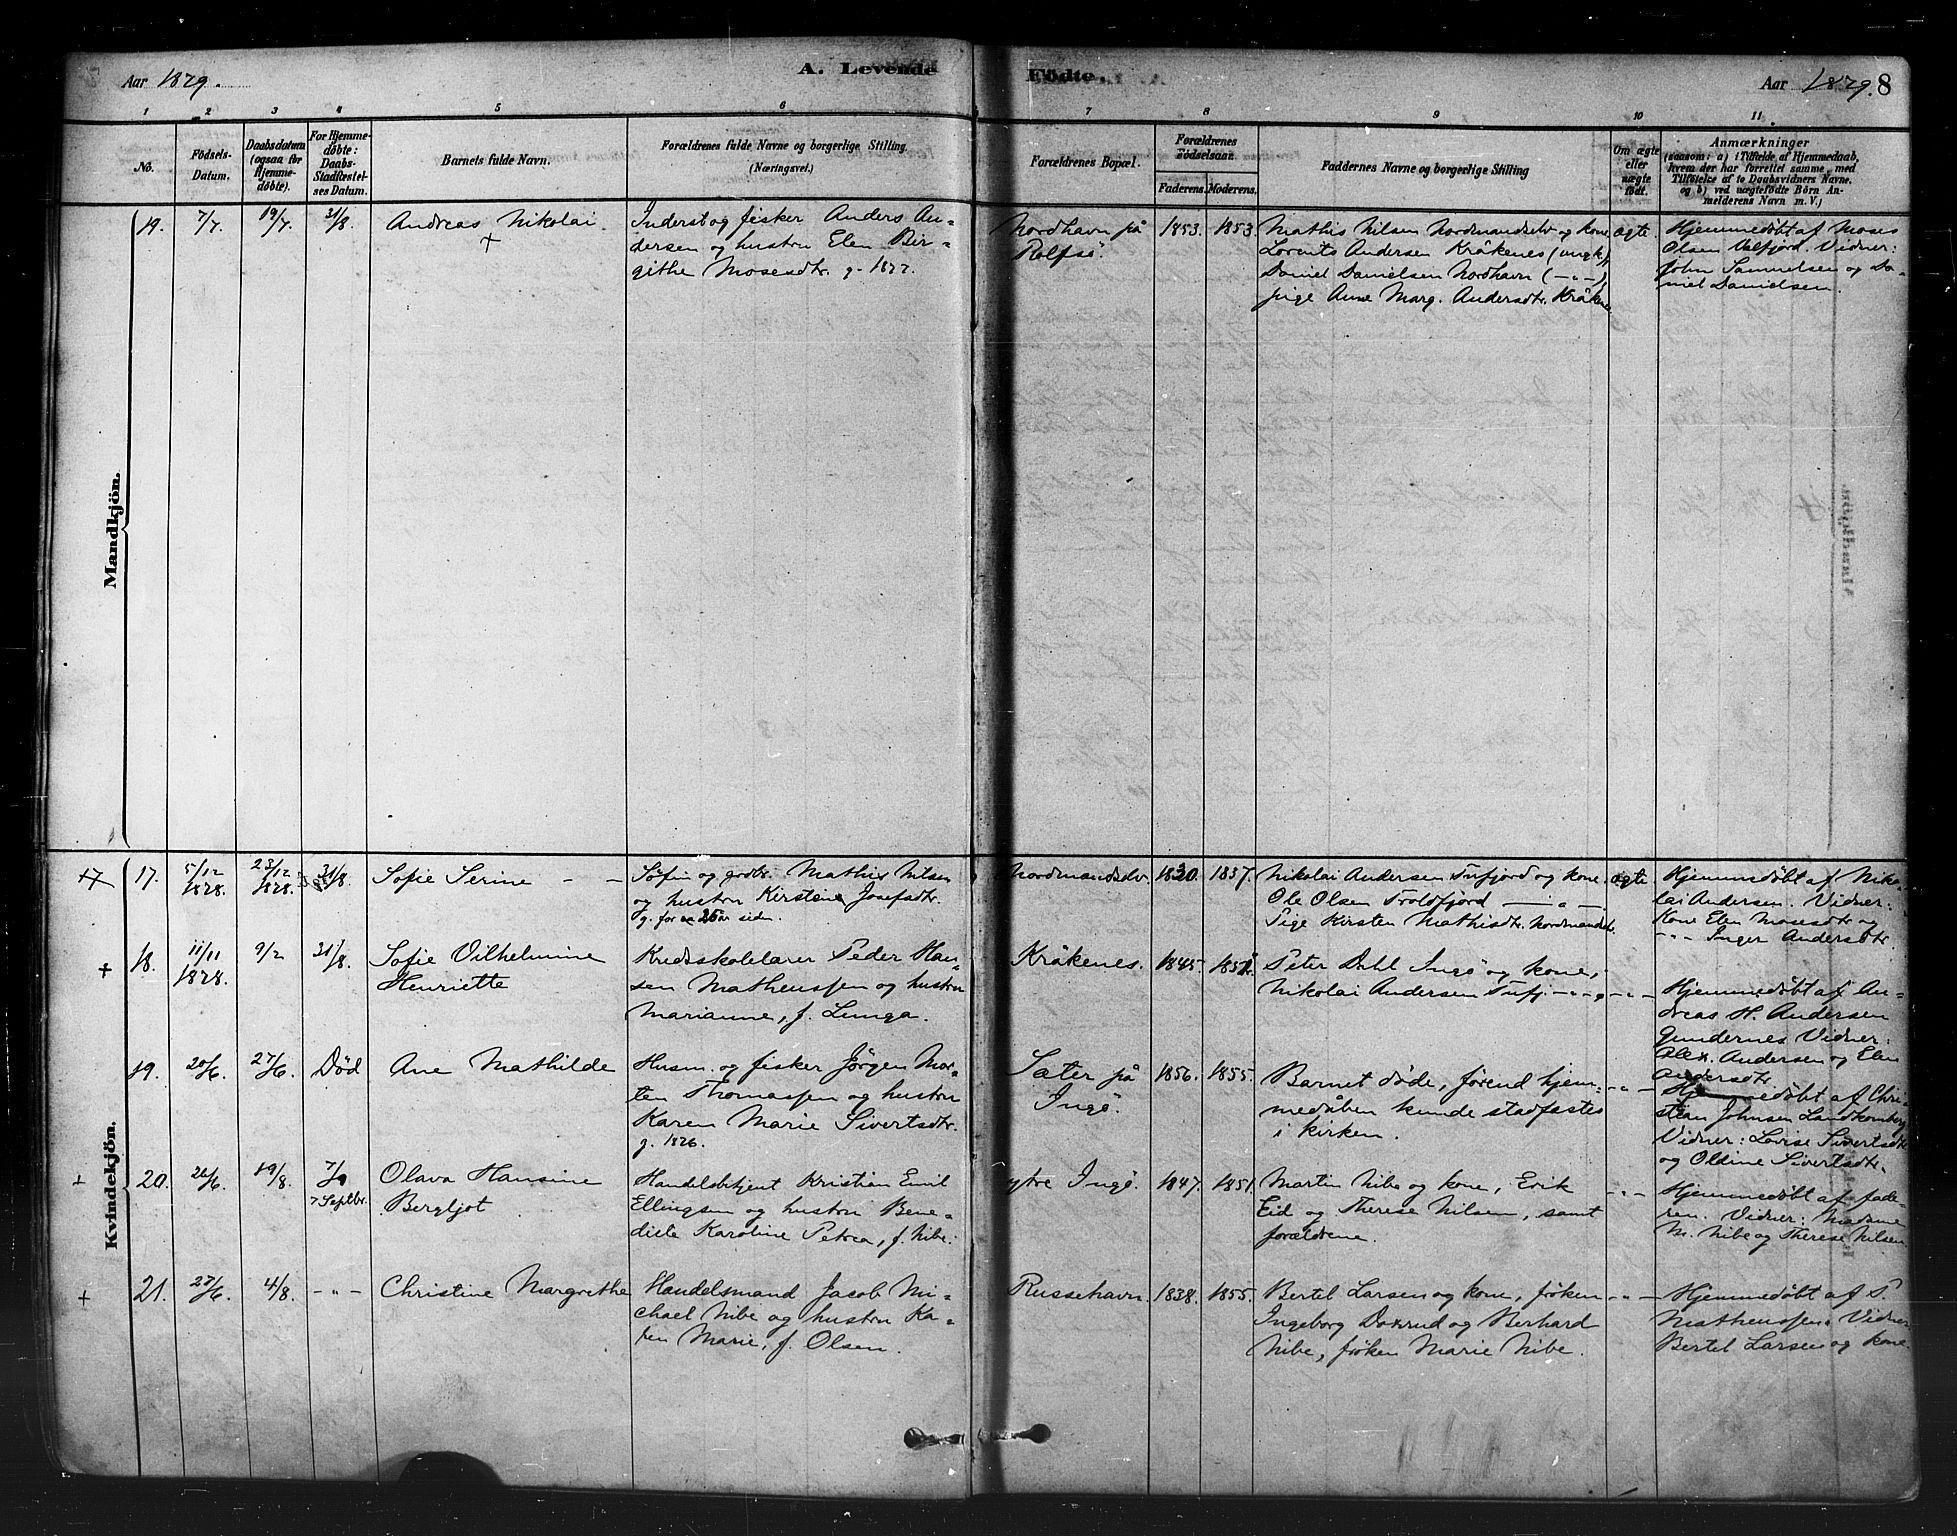 Aar 1879.
A. Levende
Födte.
Aar 1879. 8
1 2 3 4 5 6 7 8 9 10 11
No.
Födsels-Datum.
Daabsdatum (ogsaa för Hjemme-döbte).
For Hjemme-döbte: Daabs-Stadfæstel-ses Datum.
Barnets fulde Navn.
Forældrenes fulde Navne og borgerlige Stilling. (Næringsvei.)
Forældrenes Bopæl.
Forældrenes Födselsaar.
Faderens. Moderens.
Faddernes Navne og borgerlige Stilling
Om ægte eller uægte födt.
Anmærkninger
(saasom: a) i Tilfælde af Hjemmedaab, hvem der har forrettet samme, med Tilföielse af to Daabsvidners Navne, og b) ved uægtefödte Börn An-melderens Navn m. V.)
Mandkjön.
19. 7/7. 19/7. 31/8. Andreas Nikolai
+
Inderst og fisker Anders An-
dersen og hustru Elen Bir-
githe Mosesdtr. g. 1877.
Nordhavn på
Rolfsö.
1853. 1853.
Mathis Nilsen Nordmandselv og kone,
Lorents Andersen Kråkenes (ungk.),
Daniel Danielsen Nordhavn (-"-),
pige Anne Marg. Andersdtr. Kråkenes
ægte.
Hjemmedøbt af Moses
Olsen Ulfjord. Vidner:
John Samuelsen og Da-
niel Danielsen.
Kvindekjön.
17 17. 5/12 1878. 23/12 1878. 31/8. Sofie Serine - -
Søfin og jordbr. Mathis Nilsen
og hustru Kirstine Josefsdtr.
g. for ca 25 år siden.
Nordmandselv. 1820. 1837.
Nikolai Andersen Tufjord og kone.
Ole Olsen Troldfjord -"-
Pige Kirsten Mathisdtr. Nordmandselv.
ægte
Hjemmedøbt af Niko-
lai Andersen. Vidner:
Kone Elen Mosesdtr og
-"- Inger Andersdtr.
+ 18. 11/11 1878. 9/2 31/8. Sofie Vilhelmine
Henriette
Kredsskolelærer Peder Han-
sen Matheussen og hustru
Marianne, f. Lunga.
Kråkenes. 1845.
Peter Dahl Ingö og kone,
Nikolai Andersen Tufj. -"-
-"-
Hjemmedøbt af An-
dreas H. Andersen
Gundernes Vidner:
Alex. Andersen og Elen
Andersdtr.
19. 20/6. 27/6. Död Ane Mathilde
Husm. og fisker Jørgen Mor-
ten Thomassen og hustru
Karen Marie Sivertsdtr.
g. 1876.
Sæter på
Ingö.
1856. 1855.
Barnet døde, førend hjem-
medåben kunde stadfæstes
i kirken.
-"-
Hjemmedøbt af Chri-
stian Johnsen
Vidner: Lovise Sivertsdtr.
og Oldine Sivertsdtr.
+ 20. 26/6. 19/8. 7/9 7 Septbr. Olava Hansine
Bergljot
Handelsbetjent Kristian Emil
Ellingsen og hustru Bene-
dicte Karoline Petrea, f. Nibe.
ytre Ingö. 1847. 1851.
Martin Nibe og kone, Erik
Eid og Therese Nilsen, samt
forældrene.
-"-
Hjemmedøbt af fade-
ren. Vidner: Madame
M. Nibe og Therese Nilsen.
+ 21. 27/6. 4/8. -"- Christine Margrethe
Handelsmand Jacob Mi-
chael Nibe og hustru Ka-
ren Marie, f. Olsen.
Russehavn. 1838. 1855.
Bertel Larsen og kone, frøken
Ingeborg Daxrud og Berhard
Nibe, frøken Marie Nibe.
-"-
Hjemmedøbt af P.
Matheussen. Vidner
Bertel Larsen og kone.